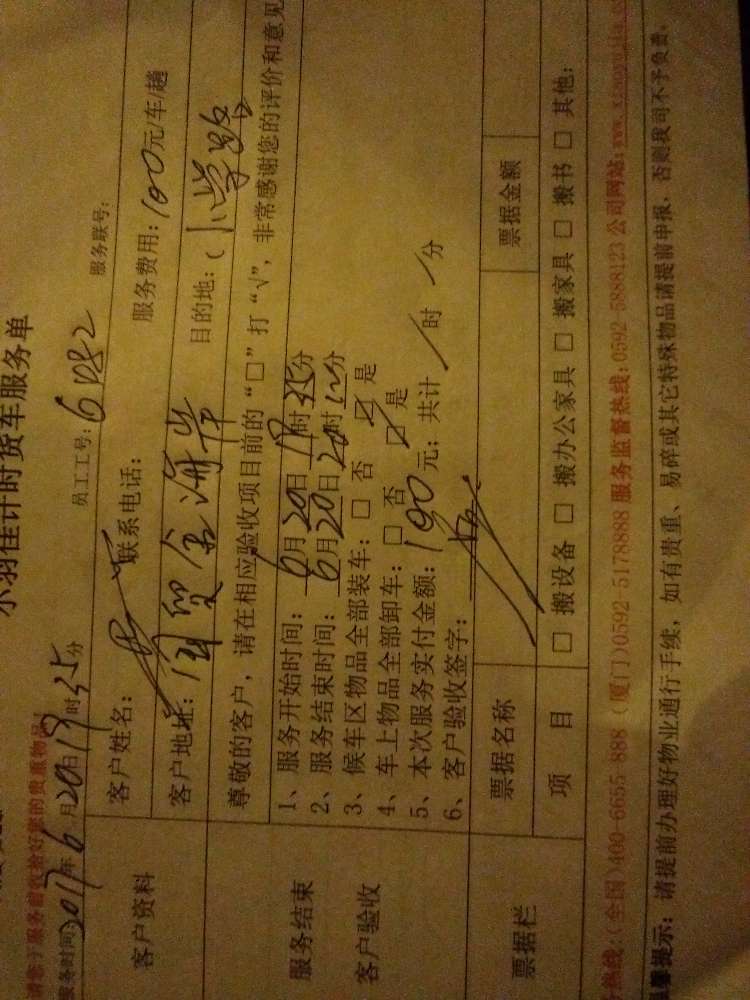 小羽佳计时货车服务单
请您于服务前收拾好您的贵重物品!
服务时间: 2017年6月20日19时35分 员工工号: 6082 服务联号:
客户资料
客户姓名: 联系电话: 服务费用: 100元/车/趟
客户地址: 国贸金海岸 目的地: 小学路
服务结束
客户验收
尊敬的客户,请在相应验收项目前的“□”打“√”,非常感谢您的评价和意见
1、服务开始时间: 6月20日19时35分
2、服务结束时间: 6月20日20时 分
3、候车区物品全部装车: □ 否 ☑ 是
4、车上物品全部卸车: □ 否 ☑ 是
5、本次服务实付金额: 100元; 共计 / 时 / 分
6、客户验收签字:
票据栏
票据名称 票据金额
项 目 □ 搬设备 □ 搬办公家具 □ 搬家具 □ 搬书 □ 其他:
热线:(全国)400-6655-888 (厦门)0592-5178888 服务监督热线:0592-5888123 公司网站:www.xiaoyujia.c
温馨提示: 请提前办理好物业通行手续, 如有贵重、易碎或其它特殊物品请提前申报, 否则我司不予负责。